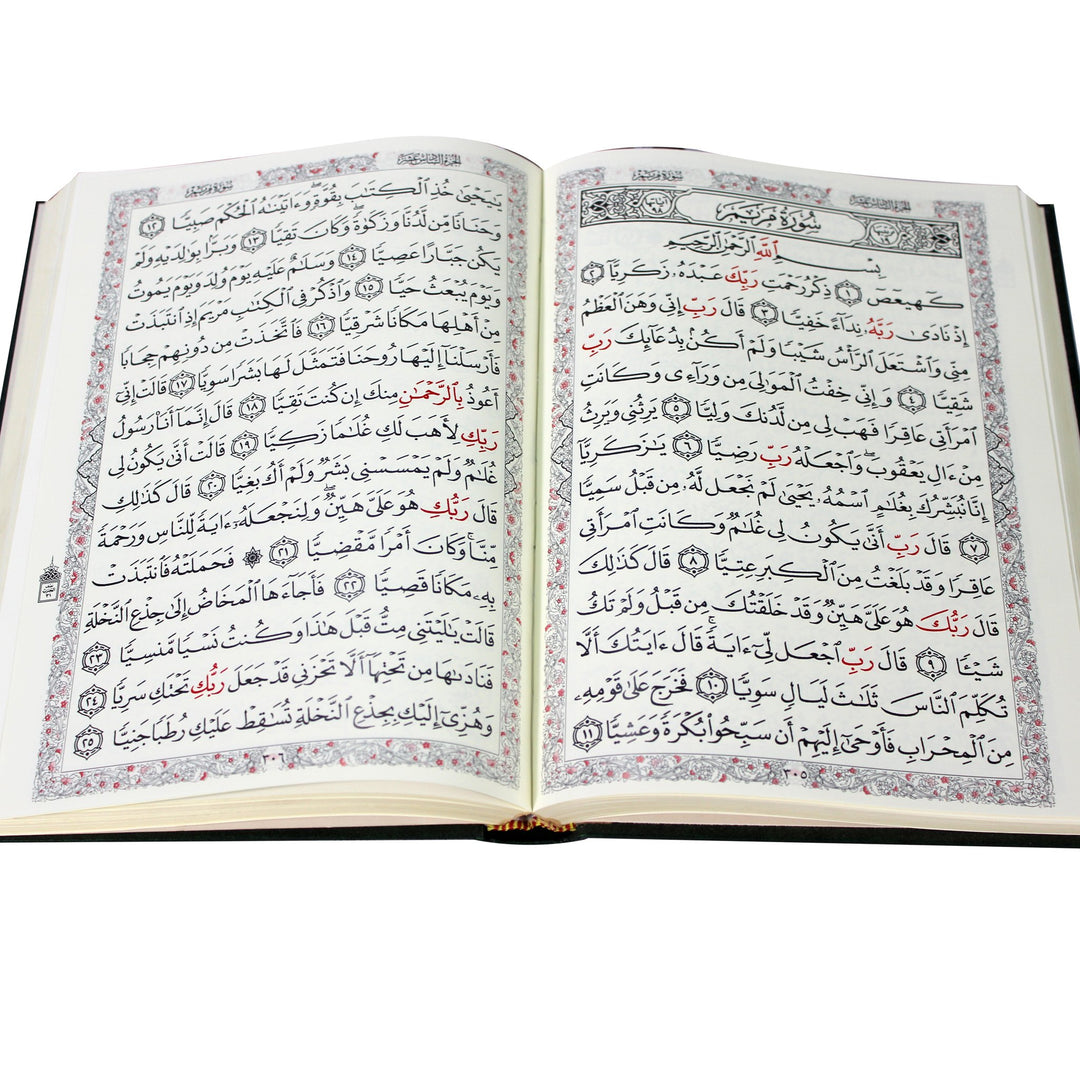 سُورَةُ مَرْيَمَ
الجزء السادس عشر
سُورَةُ مَرْيَمَ
بِسْمِ ٱللَّهِ ٱلرَّحْمَٰنِ ٱلرَّحِيمِ
كٓهيعٓصٓ ١ ذِكْرُ رَحْمَتِ رَبِّكَ عَبْدَهُۥ زَكَرِيَّآ ٢
إِذْ نَادَىٰ رَبَّهُۥ نِدَآءً خَفِيًّا ٣ قَالَ رَبِّ إِنِّي وَهَنَ ٱلْعَظْمُ
مِنِّي وَٱشْتَعَلَ ٱلرَّأْسُ شَيْبًا وَلَمْ أَكُنۢ بِدُعَآئِكَ رَبِّ
شَقِيًّا ٤ وَإِنِّي خِفْتُ ٱلْمَوَٰلِيَ مِن وَرَآءِي وَكَانَتِ
ٱمْرَأَتِي عَاقِرًا فَهَبْ لِي مِن لَّدُنكَ وَلِيًّا ٥ يَرِثُنِي وَيَرِثُ
مِنْ ءَالِ يَعْقُوبَۖ وَٱجْعَلْهُ رَبِّ رَضِيًّا ٦ يَٰزَكَرِيَّآ
إِنَّا نُبَشِّرُكَ بِغُلَٰمٍ ٱسْمُهُۥ يَحْيَىٰ لَمْ نَجْعَل لَّهُۥ مِن قَبْلُ سَمِيًّا
٧ قَالَ رَبِّ أَنَّىٰ يَكُونُ لِي غُلَٰمٌ وَكَانَتِ ٱمْرَأَتِي
عَاقِرًا وَقَدْ بَلَغْتُ مِنَ ٱلْكِبَرِ عِتِيًّا ٨ قَالَ كَذَٰلِكَ
قَالَ رَبُّكَ هُوَ عَلَيَّ هَيِّنٌ وَقَدْ خَلَقْتُكَ مِن قَبْلُ وَلَمْ تَكُ
شَيْـًٔا ٩ قَالَ رَبِّ ٱجْعَل لِّيٓ ءَايَةًۚ قَالَ ءَايَتُكَ أَلَّا
تُكَلِّمَ ٱلنَّاسَ ثَلَٰثَ لَيَالٍ سَوِيًّا ١٠ فَخَرَجَ عَلَىٰ قَوْمِهِۦ
مِنَ ٱلْمِحْرَابِ فَأَوْحَىٰٓ إِلَيْهِمْ أَن سَبِّحُوا۟ بُكْرَةً وَعَشِيًّا ١١
٣٠٥
الجزء السادس عشر
سُورَةُ مَرْيَمَ
يَٰيَحْيَىٰ خُذِ ٱلْكِتَٰبَ بِقُوَّةٍۖ وَءَاتَيْنَٰهُ ٱلْحُكْمَ صَبِيًّا ١٢
وَحَنَانًا مِّن لَّدُنَّا وَزَكَوٰةًۖ وَكَانَ تَقِيًّا ١٣ وَبَرًّۢا بِوَٰلِدَيْهِ وَلَمْ
يَكُن جَبَّارًا عَصِيًّا ١٤ وَسَلَٰمٌ عَلَيْهِ يَوْمَ وُلِدَ وَيَوْمَ يَمُوتُ
وَيَوْمَ يُبْعَثُ حَيًّا ١٥ وَٱذْكُرْ فِي ٱلْكِتَٰبِ مَرْيَمَ إِذِ ٱنتَبَذَتْ
مِنْ أَهْلِهَا مَكَانًا شَرْقِيًّا ١٦ فَٱتَّخَذَتْ مِن دُونِهِمْ حِجَابًا
فَأَرْسَلْنَآ إِلَيْهَا رُوحَنَا فَتَمَثَّلَ لَهَا بَشَرًا سَوِيًّا ١٧ قَالَتْ إِنِّيٓ
أَعُوذُ بِٱلرَّحْمَٰنِ مِنكَ إِن كُنتَ تَقِيًّا ١٨ قَالَ إِنَّمَآ أَنَا۠ رَسُولُ
رَبِّكِ لِأَهَبَ لَكِ غُلَٰمًا زَكِيًّا ١٩ قَالَتْ أَنَّىٰ يَكُونُ لِي
غُلَٰمٌ وَلَمْ يَمْسَسْنِي بَشَرٌ وَلَمْ أَكُ بَغِيًّا ٢٠ قَالَ كَذَٰلِكِ
قَالَ رَبُّكِ هُوَ عَلَيَّ هَيِّنٌۖ وَلِنَجْعَلَهُۥٓ ءَايَةً لِّلنَّاسِ وَرَحْمَةً
مِّنَّاۚ وَكَانَ أَمْرًا مَّقْضِيًّا ٢١ ۞ فَحَمَلَتْهُ فَٱنتَبَذَتْ
بِهِۦ مَكَانًا قَصِيًّا ٢٢ فَأَجَآءَهَا ٱلْمَخَاضُ إِلَىٰ جِذْعِ ٱلنَّخْلَةِ
قَالَتْ يَٰلَيْتَنِي مِتُّ قَبْلَ هَٰذَا وَكُنتُ نَسْيًا مَّنسِيًّا ٢٣
فَنَادَىٰهَا مِن تَحْتِهَآ أَلَّا تَحْزَنِي قَدْ جَعَلَ رَبُّكِ تَحْتَكِ سَرِيًّا ٢٤
وَهُزِّيٓ إِلَيْكِ بِجِذْعِ ٱلنَّخْلَةِ تُسَٰقِطْ عَلَيْكِ رُطَبًا جَنِيًّا ٢٥
٣٠٦